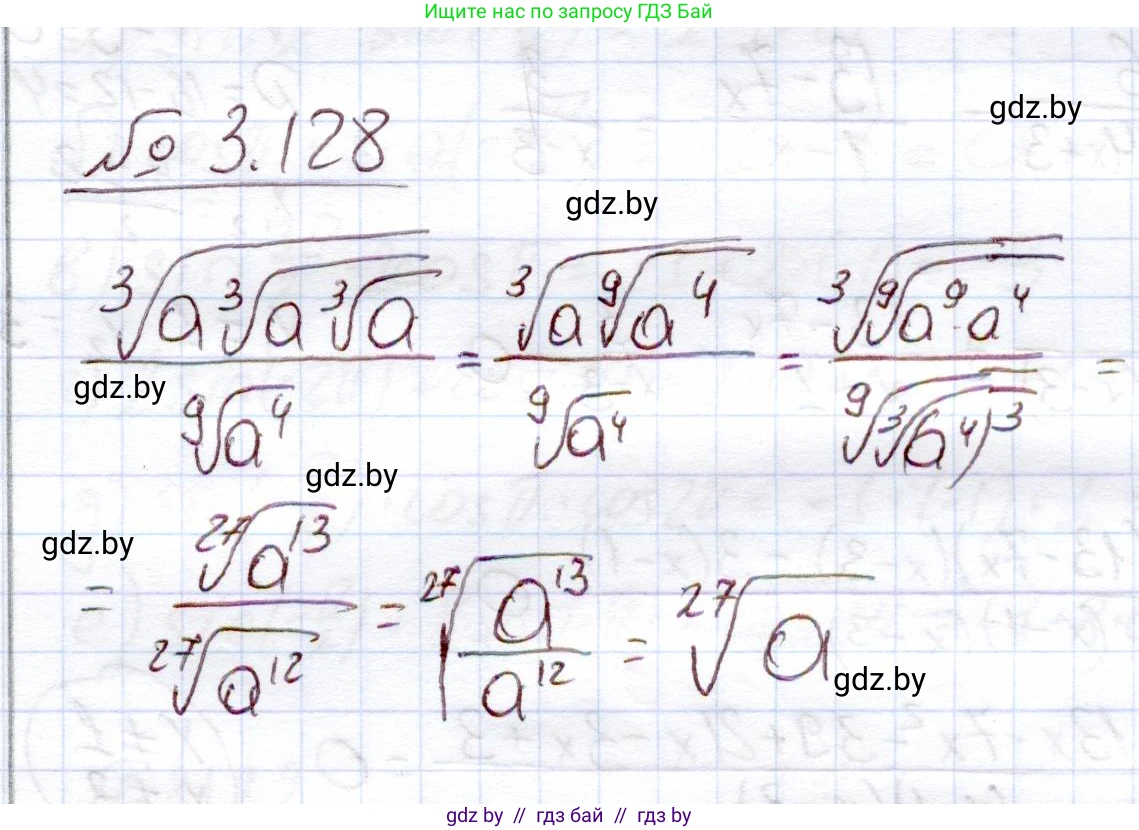 Ищите нас по запросу ГДЗ Бай
gdz.by
№ 3.128
gdz.by
∛(a∛(a∛a)) / ⁹√(a⁴) = ∛(a ⁹√(a⁴)) / ⁹√(a⁴) = ∛(⁹√(a⁹·a⁴)) / ⁹√(∛((a⁴)³)) =
gdz.by
gdz.by
gdz.by
= ²⁷√(a¹³) / ²⁷√(a¹²) = ²⁷√(a¹³/a¹²) = ²⁷√a
gdz.by
gdz.by // гдз бай // гдз.by